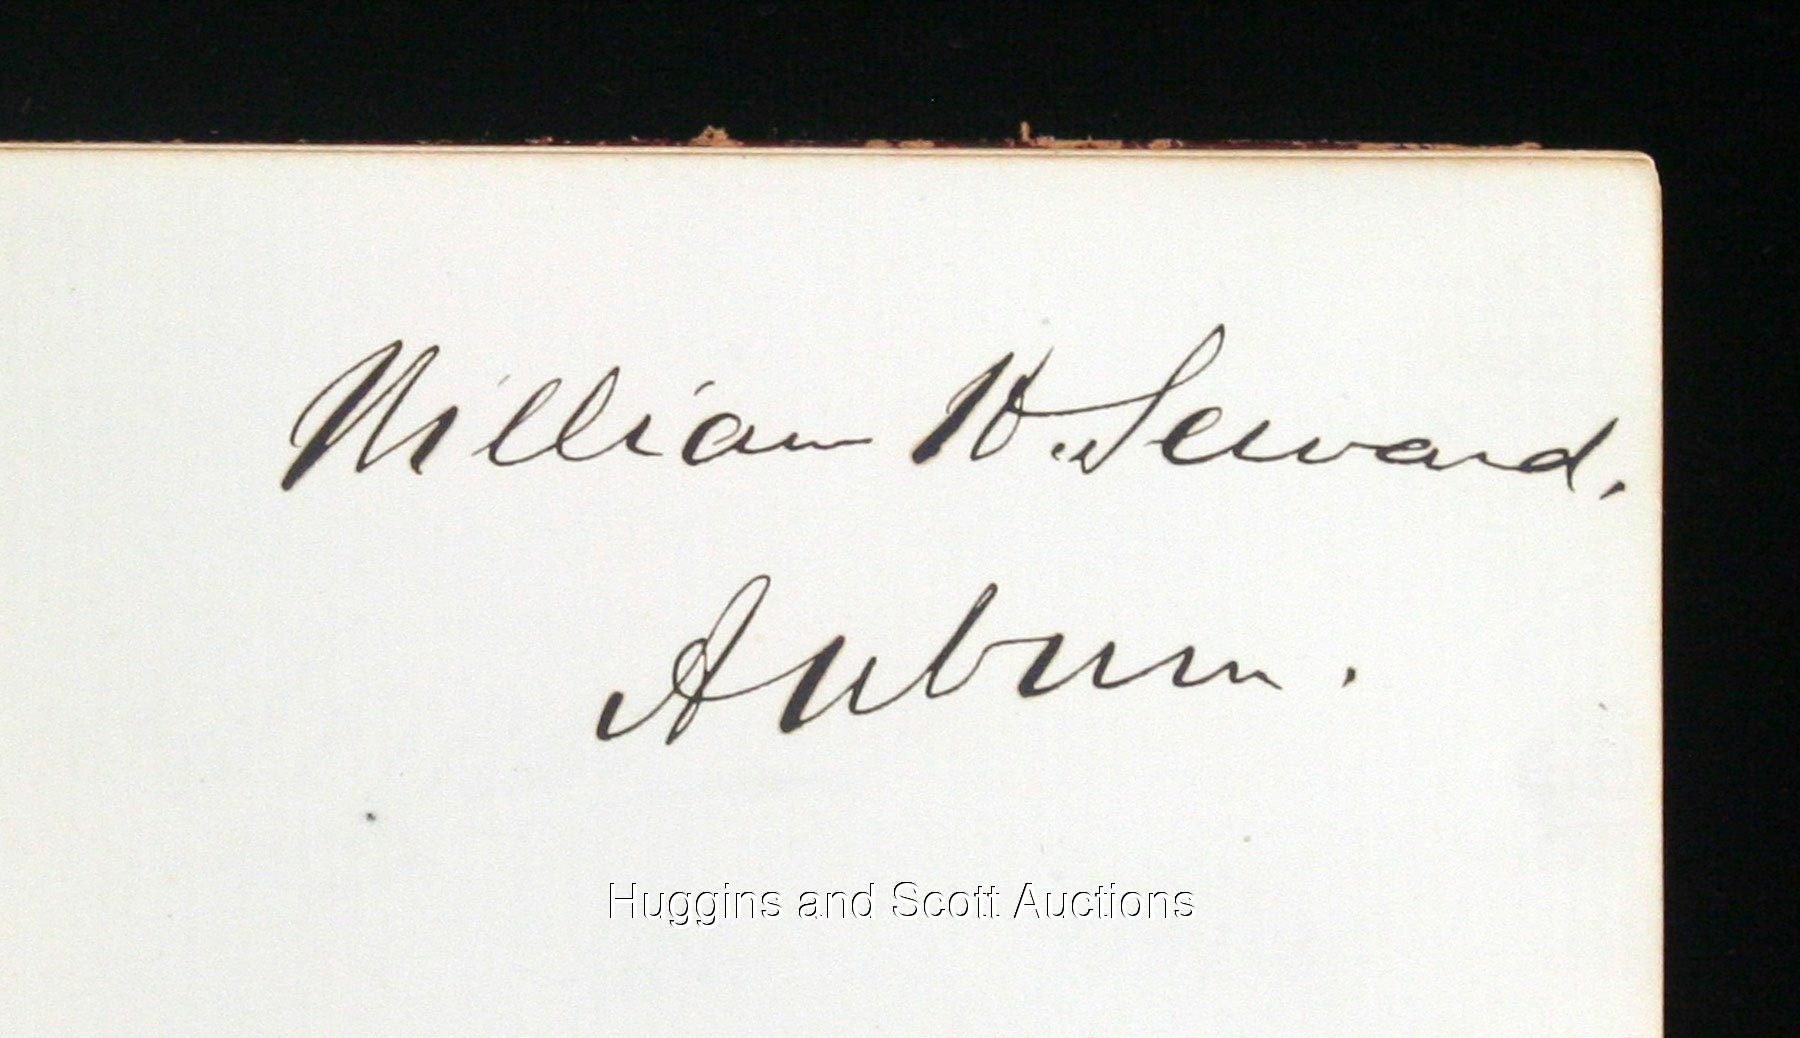 William H. Seward.
Auburn.
Huggins and Scott Auctions